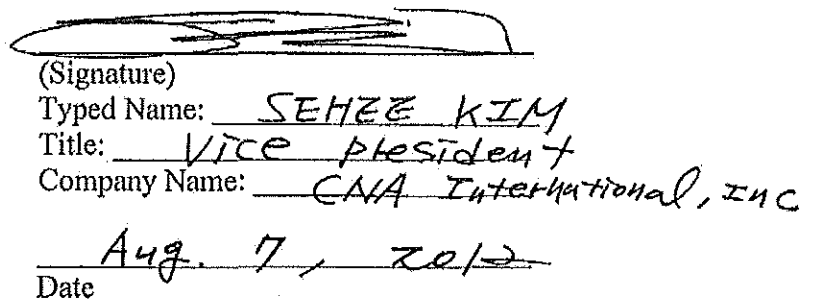 (Signature)
Typed Name: SEHEE KIM
Title: Vice president
Company Name: CNA International, Inc
Aug. 7, 2012
Date